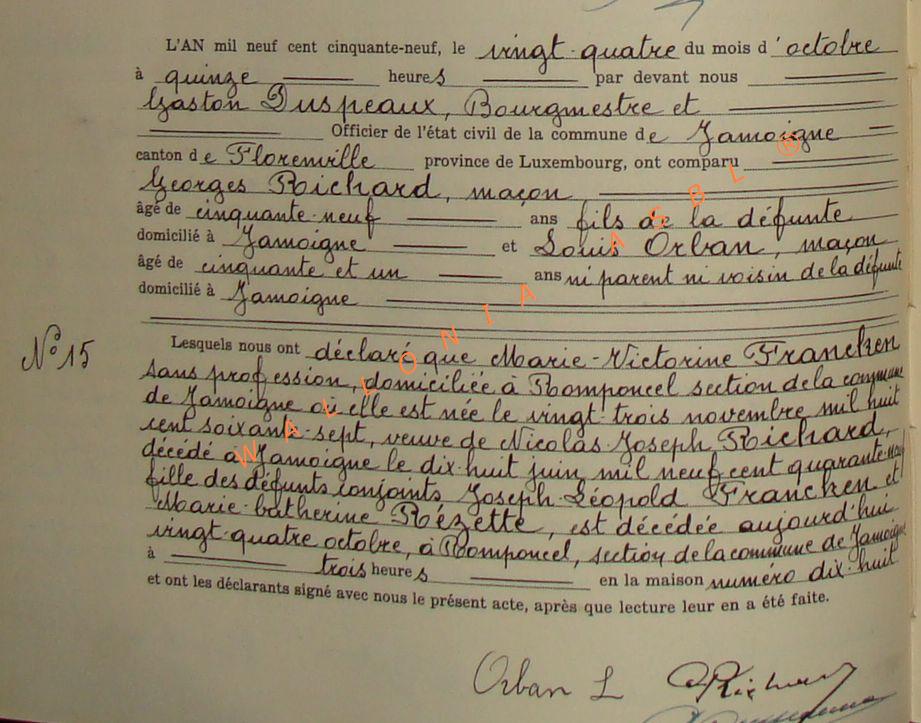 L'AN mil neuf cent cinquante-neuf, le vingt-quatre du mois d'octobre
à quinze heures par devant nous
Gaston Duspeaux, Bourgmestre et
Officier de l'état civil de la commune de Jamoigne
canton de Florenville province de Luxembourg, ont comparu
Georges Richard, maçon
âgé de cinquante-neuf ans fils de la défunte
domicilié à Jamoigne et Louis Orban, maçon
âgé de cinquante et un ans ni parent ni voisin de la défunte
domicilié à Jamoigne
N° 15
Lesquels nous ont déclaré que Marie-Victorine Francken
sans profession, domiciliée à Romponcel section de la commune
de Jamoigne où elle est née le vingt-trois novembre mil huit
cent soixante-sept, veuve de Nicolas-Joseph Richard,
décédé à Jamoigne le dix-huit juin mil neuf cent quarante-neuf
fille des défunts conjoints Joseph-Léopold Francken et
Marie-Catherine Rézette, est décédée aujourd'hui
vingt-quatre octobre, à Romponcel, section de la commune de Jamoigne
à trois heures en la maison numéro dix-huit
et ont les déclarants signé avec nous le présent acte, après que lecture leur en a été faite.
Orban L
WALLONIA ASBL ®